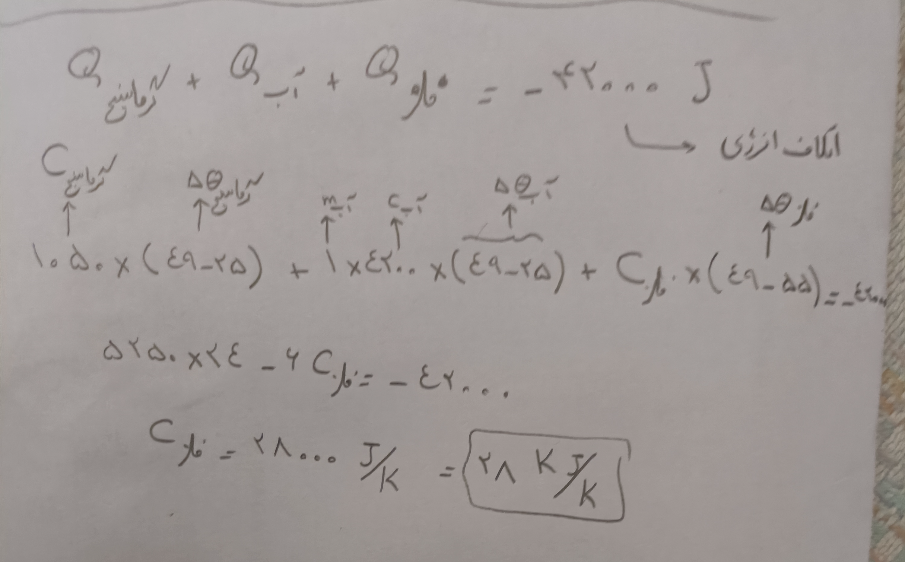 Q گرماسنج + Q آب + Q فلز = -۴۲۰۰۰ J
اتلاف انرژی
C گرماسنج Δθ گرماسنج m آب c آب Δθ آب Δθ فلز
۱۰۵۰×(٤٩-٢٥) + ۱×٤٢٠٠×(٤٩-٢٥) + C فلز ×(٤٩-۵۵)=-٤٢۰۰۰
۵۲۵۰×۲٤ - ۶ C فلز = -٤٢۰۰۰
C فلز = ۲۸۰۰۰ J/K = ۲۸ KJ/K